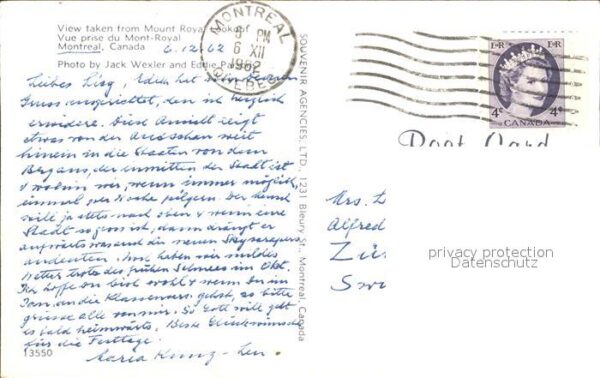 View taken from Mount Royal Lookout
Vue prise du Mont-Royal
Montreal, Canada 6.12.62
Photo by Jack Wexler and Eddie
MONTREAL
PM
6 XII
1962
QUEBEC
SOUVENIR AGENCIES, LTD., 1231 Bleury St., Montreal, Canada
E R E R
4c 4c
CANADA
Post Card
Liebes Lisg, Edith hat mir deinen
Gruss ausgerichtet, den ich herzlich
erwidere. Diese Ansicht zeigt
etwas von der Aussicht weit
hinein in die Staaten von dem
Berg aus, der inmitten der Stadt ist
& wohin wir, wenn immer möglich,
einmal per Woche pilgern. Der Mensch
will ja stets nach oben & wenn eine
Stadt so gross ist, dann drängt er
aufwärts was auch die neuen Skyscrapers
andeuten. Noch haben wir mildes
Wetter trotz des frühen Schnees im Okt.
Ich hoffe Du bist wohl & wenn Du im
Jan. an die Klassenvers. gehst, so bitte
grüsse alle von mir. So Gott will geht
es bald heimwärts. Beste Glückwünsche
für die Festtage.
Maria
13550
Mrs.
Alfred
Zür
Swi
privacy protection
Datenschutz